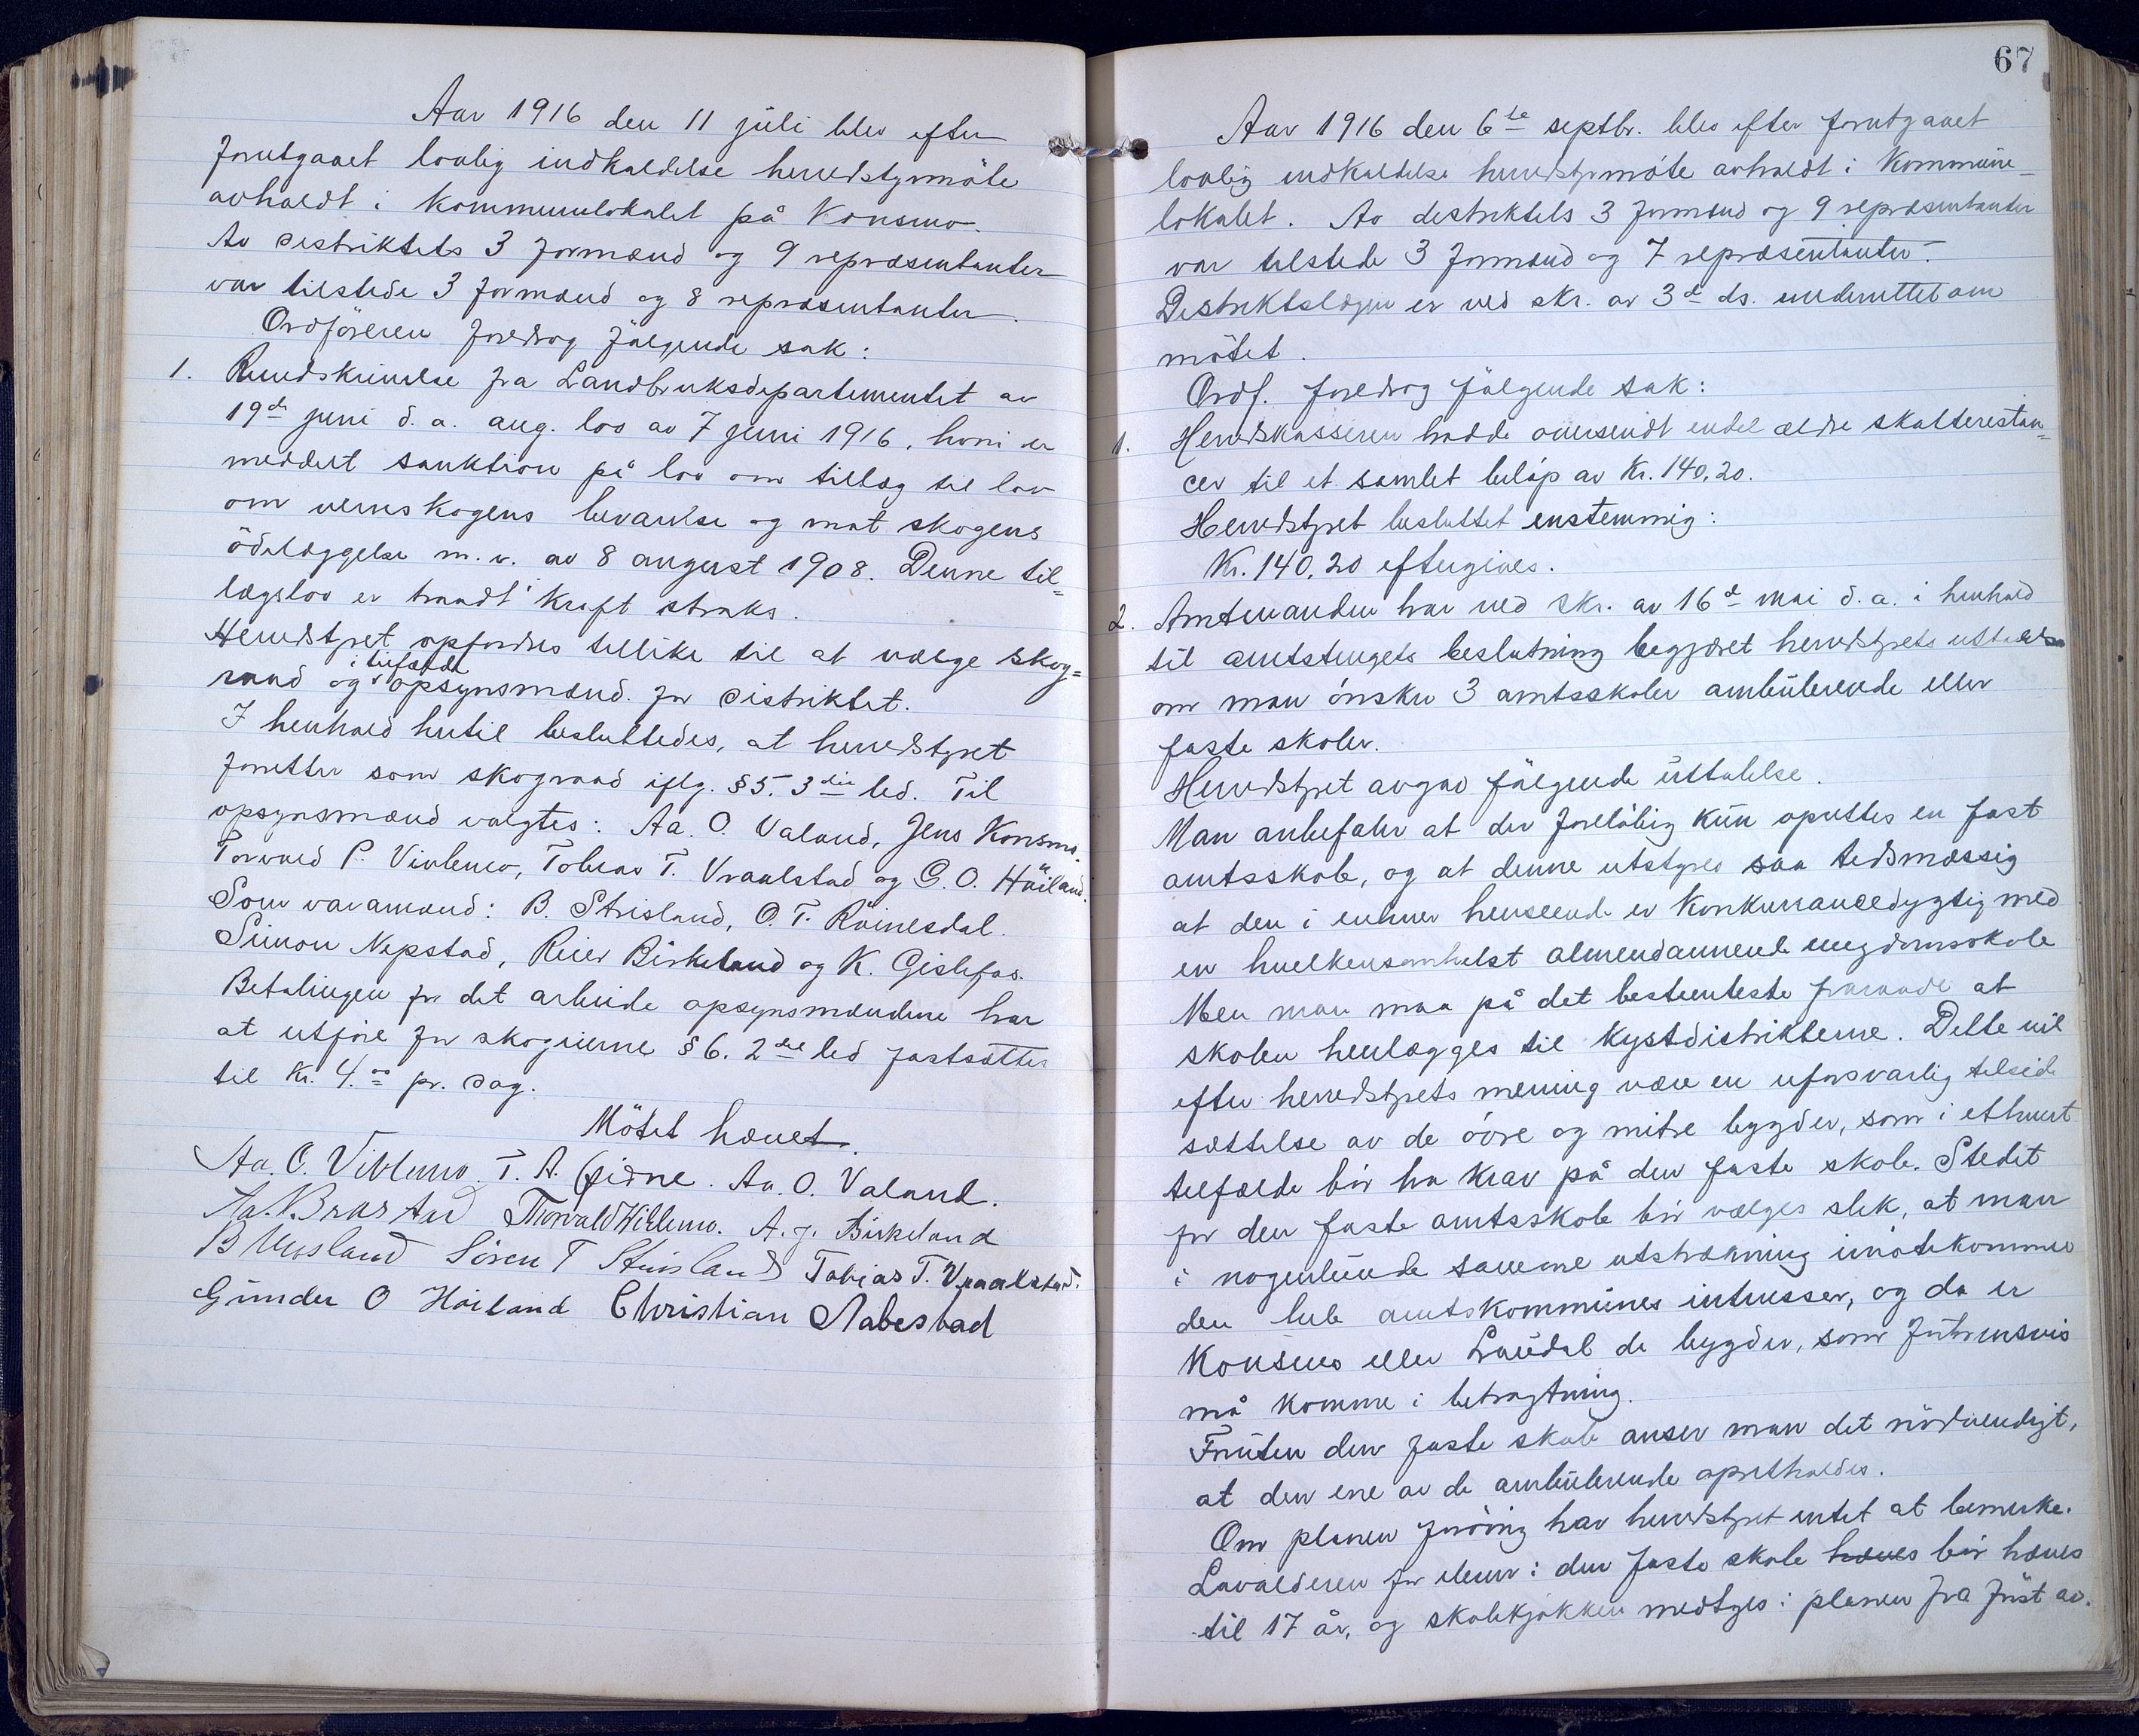 Aar 1916 den 11 juli blev efter
forutgaaet lovlig indkaldelse herredstyrmöte
avholdt i kommunelokalet på Konsmo.
Av distriktets 3 formænd og 9 repræsentanter
var tilstede 3 formænd og 8 repræsentanter.
Ordföreren foredrog fölgende sak:
1. Rundskrivelse fra Landbruksdepartementet av
19de juni d. a. ang. lov av 7 juni 1916, hvori er
meddelt sanktion på lov om tillæg til lov
om vernskogens bevarelse og mot skogens
ödelæggelse m. v. av 8 august 1908. Denne til=
lægslov er traadt i kraft straks.
Herredstyret opfordres tillike til at vælge skog=
raad og i tilfælde opsynsmænd for distriktet.
I henhold hertil besluttedes, at herredstyret
forretter som skograad iflg. § 5. 3die led. Til
opsynsmænd valgtes: Aa. O. Valand, Jens Konsmo.
Torvald P. Viblemo, Tobias T. Vraalstad og G. O. Höiland.
Som varamænd: B. Strisland, O. T. Röinesdal.
Simon Nepstad, Reier Birkeland og K. Gislefos.
Betalingen for det arbeide opsynsmændene har
at utföre for skogeierne § 6. 2det led fastsættes
til kr. 4.00 pr. dag.
Mötet hævet.
Aa. O. Viblemo. T. A. Eidne. Aa. O. Valand.
Aa. N. Brastad Thorvald Wiblemo. A. J. Birkeland
B Ursland Sören T Stuisland Tobias T. Vraalstad.
Gunder O Höiland Christian Aabestad
67
Aar 1916 den 6te septbr. blev efter forutgaaet
lovlig indkaldelse herredstyrmöte avholdt i kommune-
lokalet. Av distriktets 3 formænd og 9 repræsentanter
var tilstede 3 formænd og 7 repræsentanter.-
Distriktslægen er ved skr. av 3d ds. underrettet om
mötet.
Ordf. foredrog fölgende sak:
1. Herredskasseren hadde oversendt endel ældre skatterestan=
cer til et samlet belöp av Kr. 140,20.
Herredstyret besluttet enstemmig:
Kr. 140,20 eftergives.
2. Amtmanden har ved skr. av 16d mai d. a. i henhold
til amtstingets beslutning begjæret herredstyrets uttalelse
om man önsker 3 amtsskoler ambulerende eller
faste skoler.
Herredstyret avgav fölgende uttalelse.
Man anbefaler at der foreløbig kun oprettes en fast
amtsskole, og at denne utstyres saa tidsmæssig
at den i enhver henseende er konkurrancedygtig med
en hvilkensomhelst almendannende ungdomsskole
Men man maa på det bestemteste fraraade at
skolen henlægges til kystdistrikterne. Dette vil
efter herredstyrets mening være en uforsvarlig tilside
sættelse av de övre og mitre bygder, som i ethvert
tilfælde bör ha krav på den faste skole. Stedet
for den faste amtsskole bör vælges slik, at man
i nogenlunde samme utstrækning imötekommer
den hele amtskommunes intresser, og da er
Konsmo eller Laudal de bygder, som fortrinsvis
må komme i betragtning.
Foruten den faste skole anser man det nödvendigt,
at den ene av de ambulerende opretholdes.
Om planen forövrig har herredstyret intet at bemerke.
Lavalderen for elever i den faste skole hæves bör hæves
til 17 år, og skolekjökken medtages i planen fra först av.